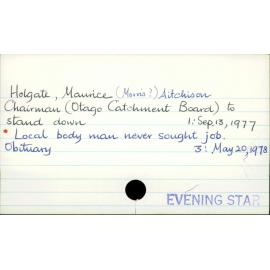 Holgate, Maurice (Morris?) Aitchison
Chairman (Otago Catchment Board) to
stand down 1: Sep.13, 1977
* Local body man never sought job.
Obituary 3: May 20, 1978
EVENING STAR